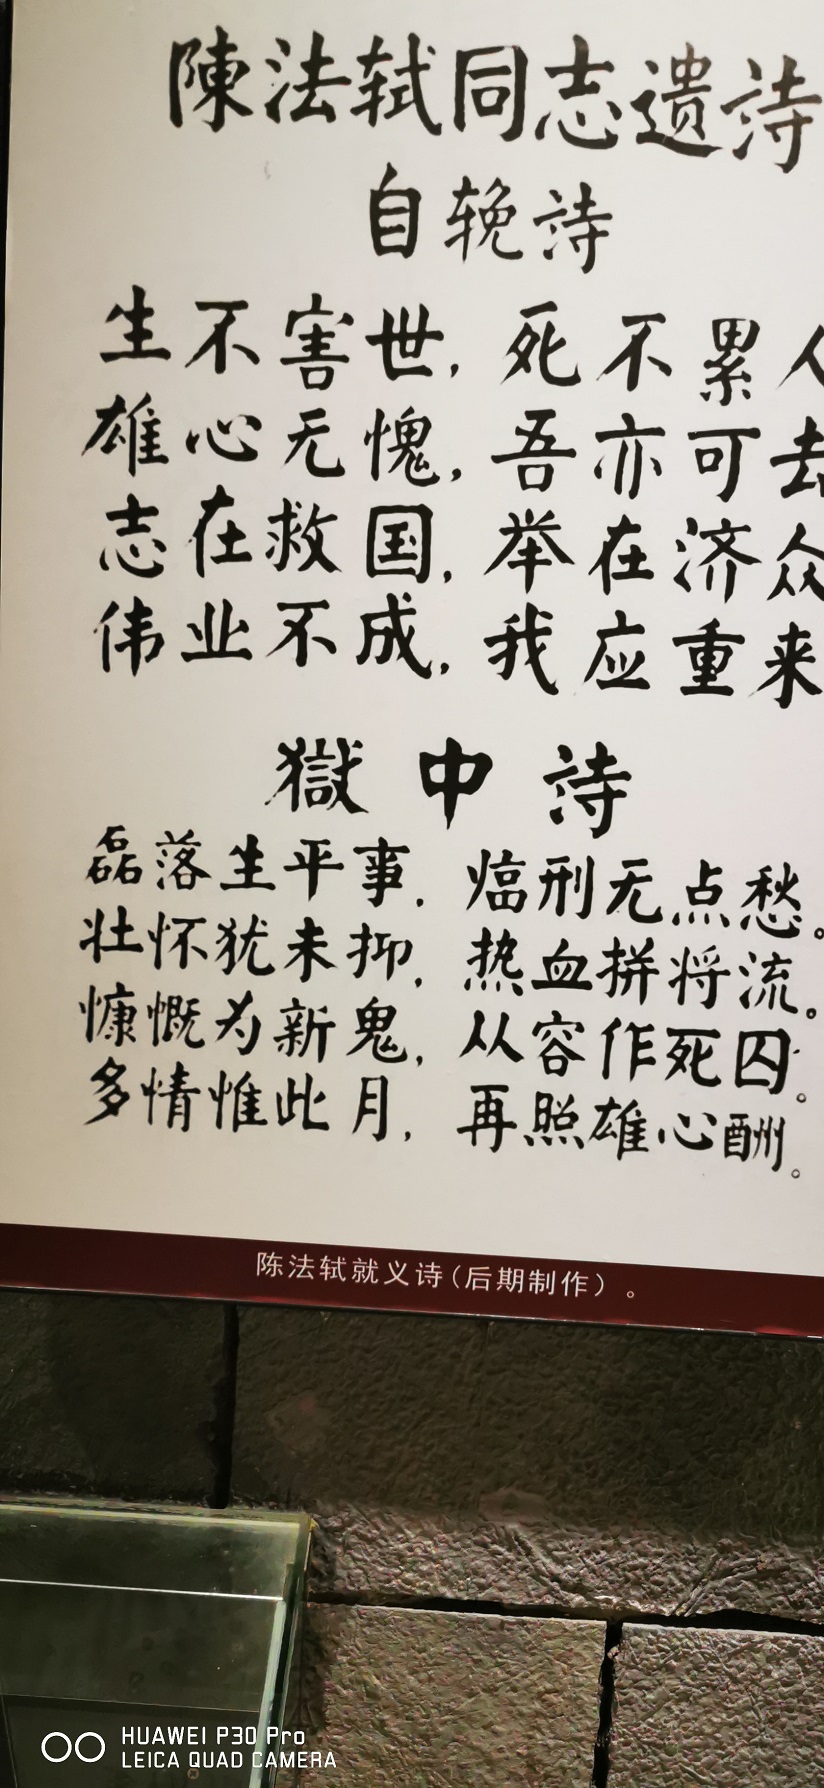 陳法轼同志遗詩
自輓詩
生不害世，死不累人
雄心无愧，吾亦可去
志在救国，举在济众
伟业不成，我应重来
獄中詩
磊落生平事，临刑无点愁。
壮怀犹未抑，热血拼将流。
慷慨为新鬼，从容作死囚。
多情惟此月，再照雄心酬。
陈法轼就义诗（后期制作）。
HUAWEI P30 Pro
LEICA QUAD CAMERA